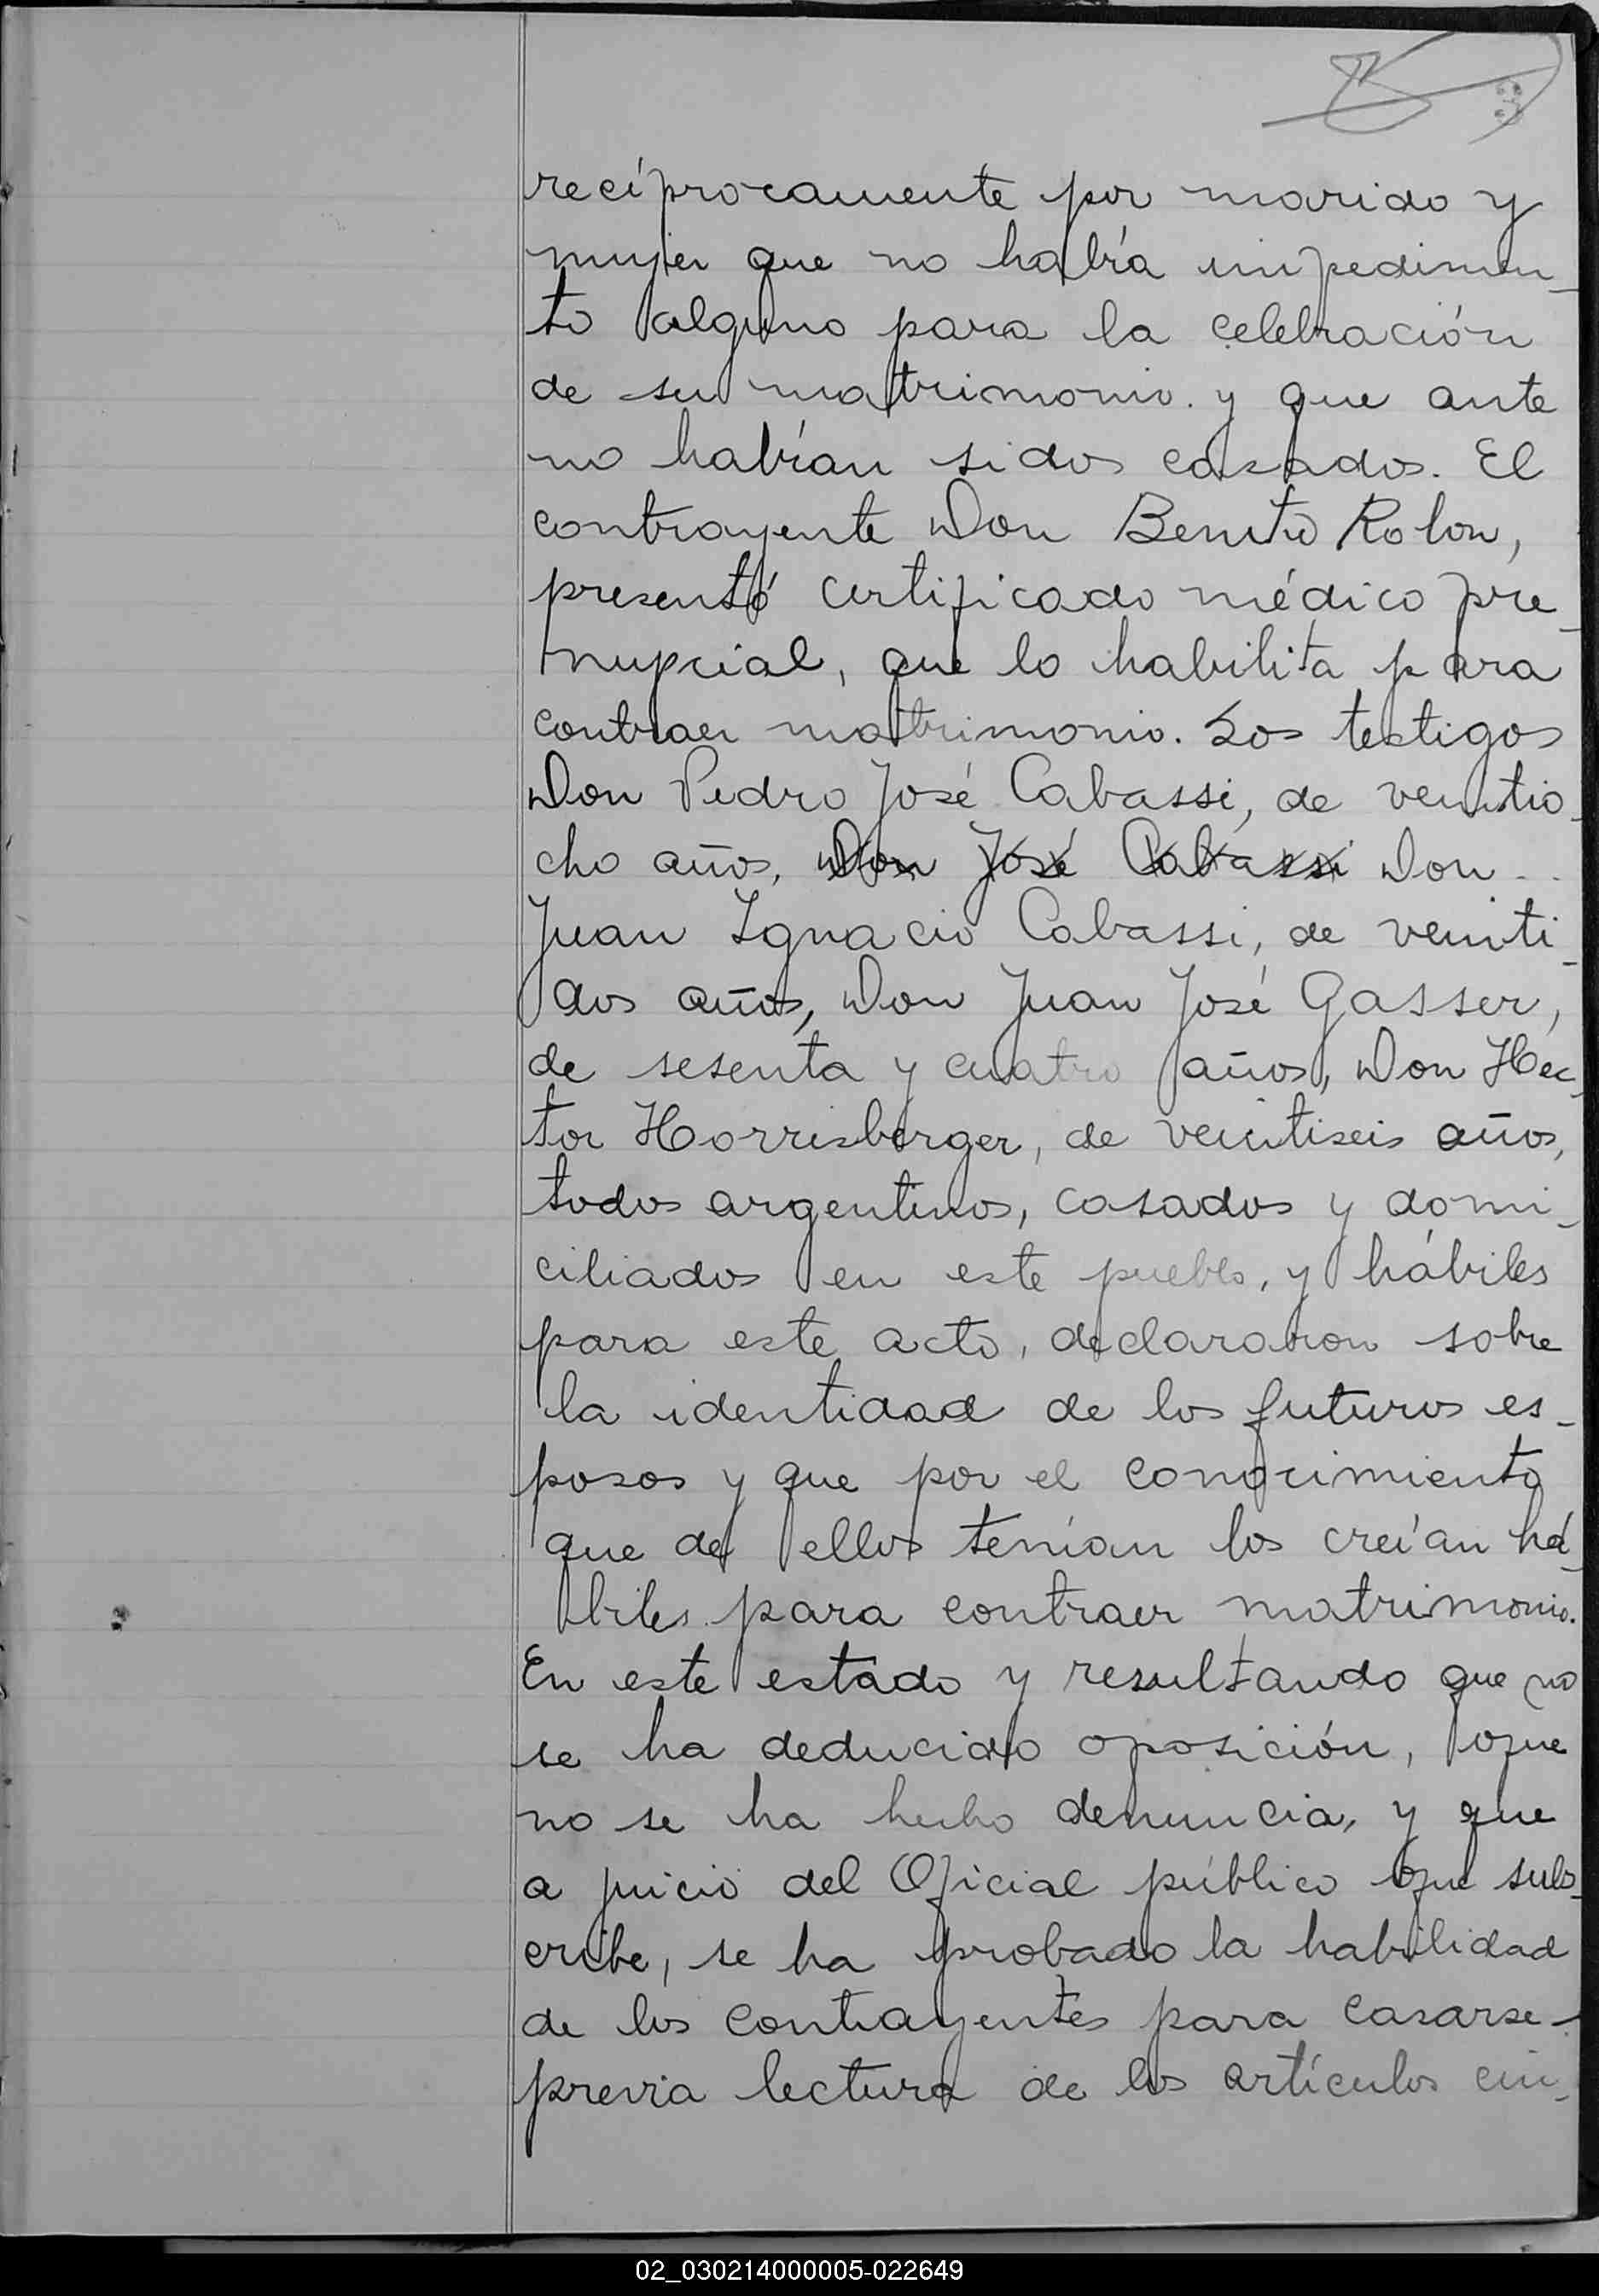 recíprocamente por marido y
mujer que no había impedimen_
to alguno para la celebración
de su matrimonio. y que ante
no habían sidos casados. El
contrayente Don Benito Rolon,
presentó certificado médico pre_
nupcial, que lo habilita para
contraer matrimonio. Los testigos
Don Pedro José Cabassi, de veintio_
cho años, Don José Cabassi Don ..
Juan Ignacio Cabassi, de veinti_
dos años, Don Juan José Gasser,
de sesenta y cuatro años, Don Hec_
tor Horrisberger, de veintiseis años,
todos argentinos, casados y domi_
ciliados en este pueblo, y hábiles
para este acto, declararon sobre
la identidad de los futuros es_
posos y que por el conocimiento
que de ellos tenían los creían há_
biles para contraer matrimonio.
En este estado y resultando que no
se ha deducido oposición, que
no se ha hecho denuncia, y que
a juicio del Oficial público que subs_
cribe, se ha probado la habilidad
de los contrayentes para casarse_
previa lectura de los artículos cin_
02_030214000005-022649